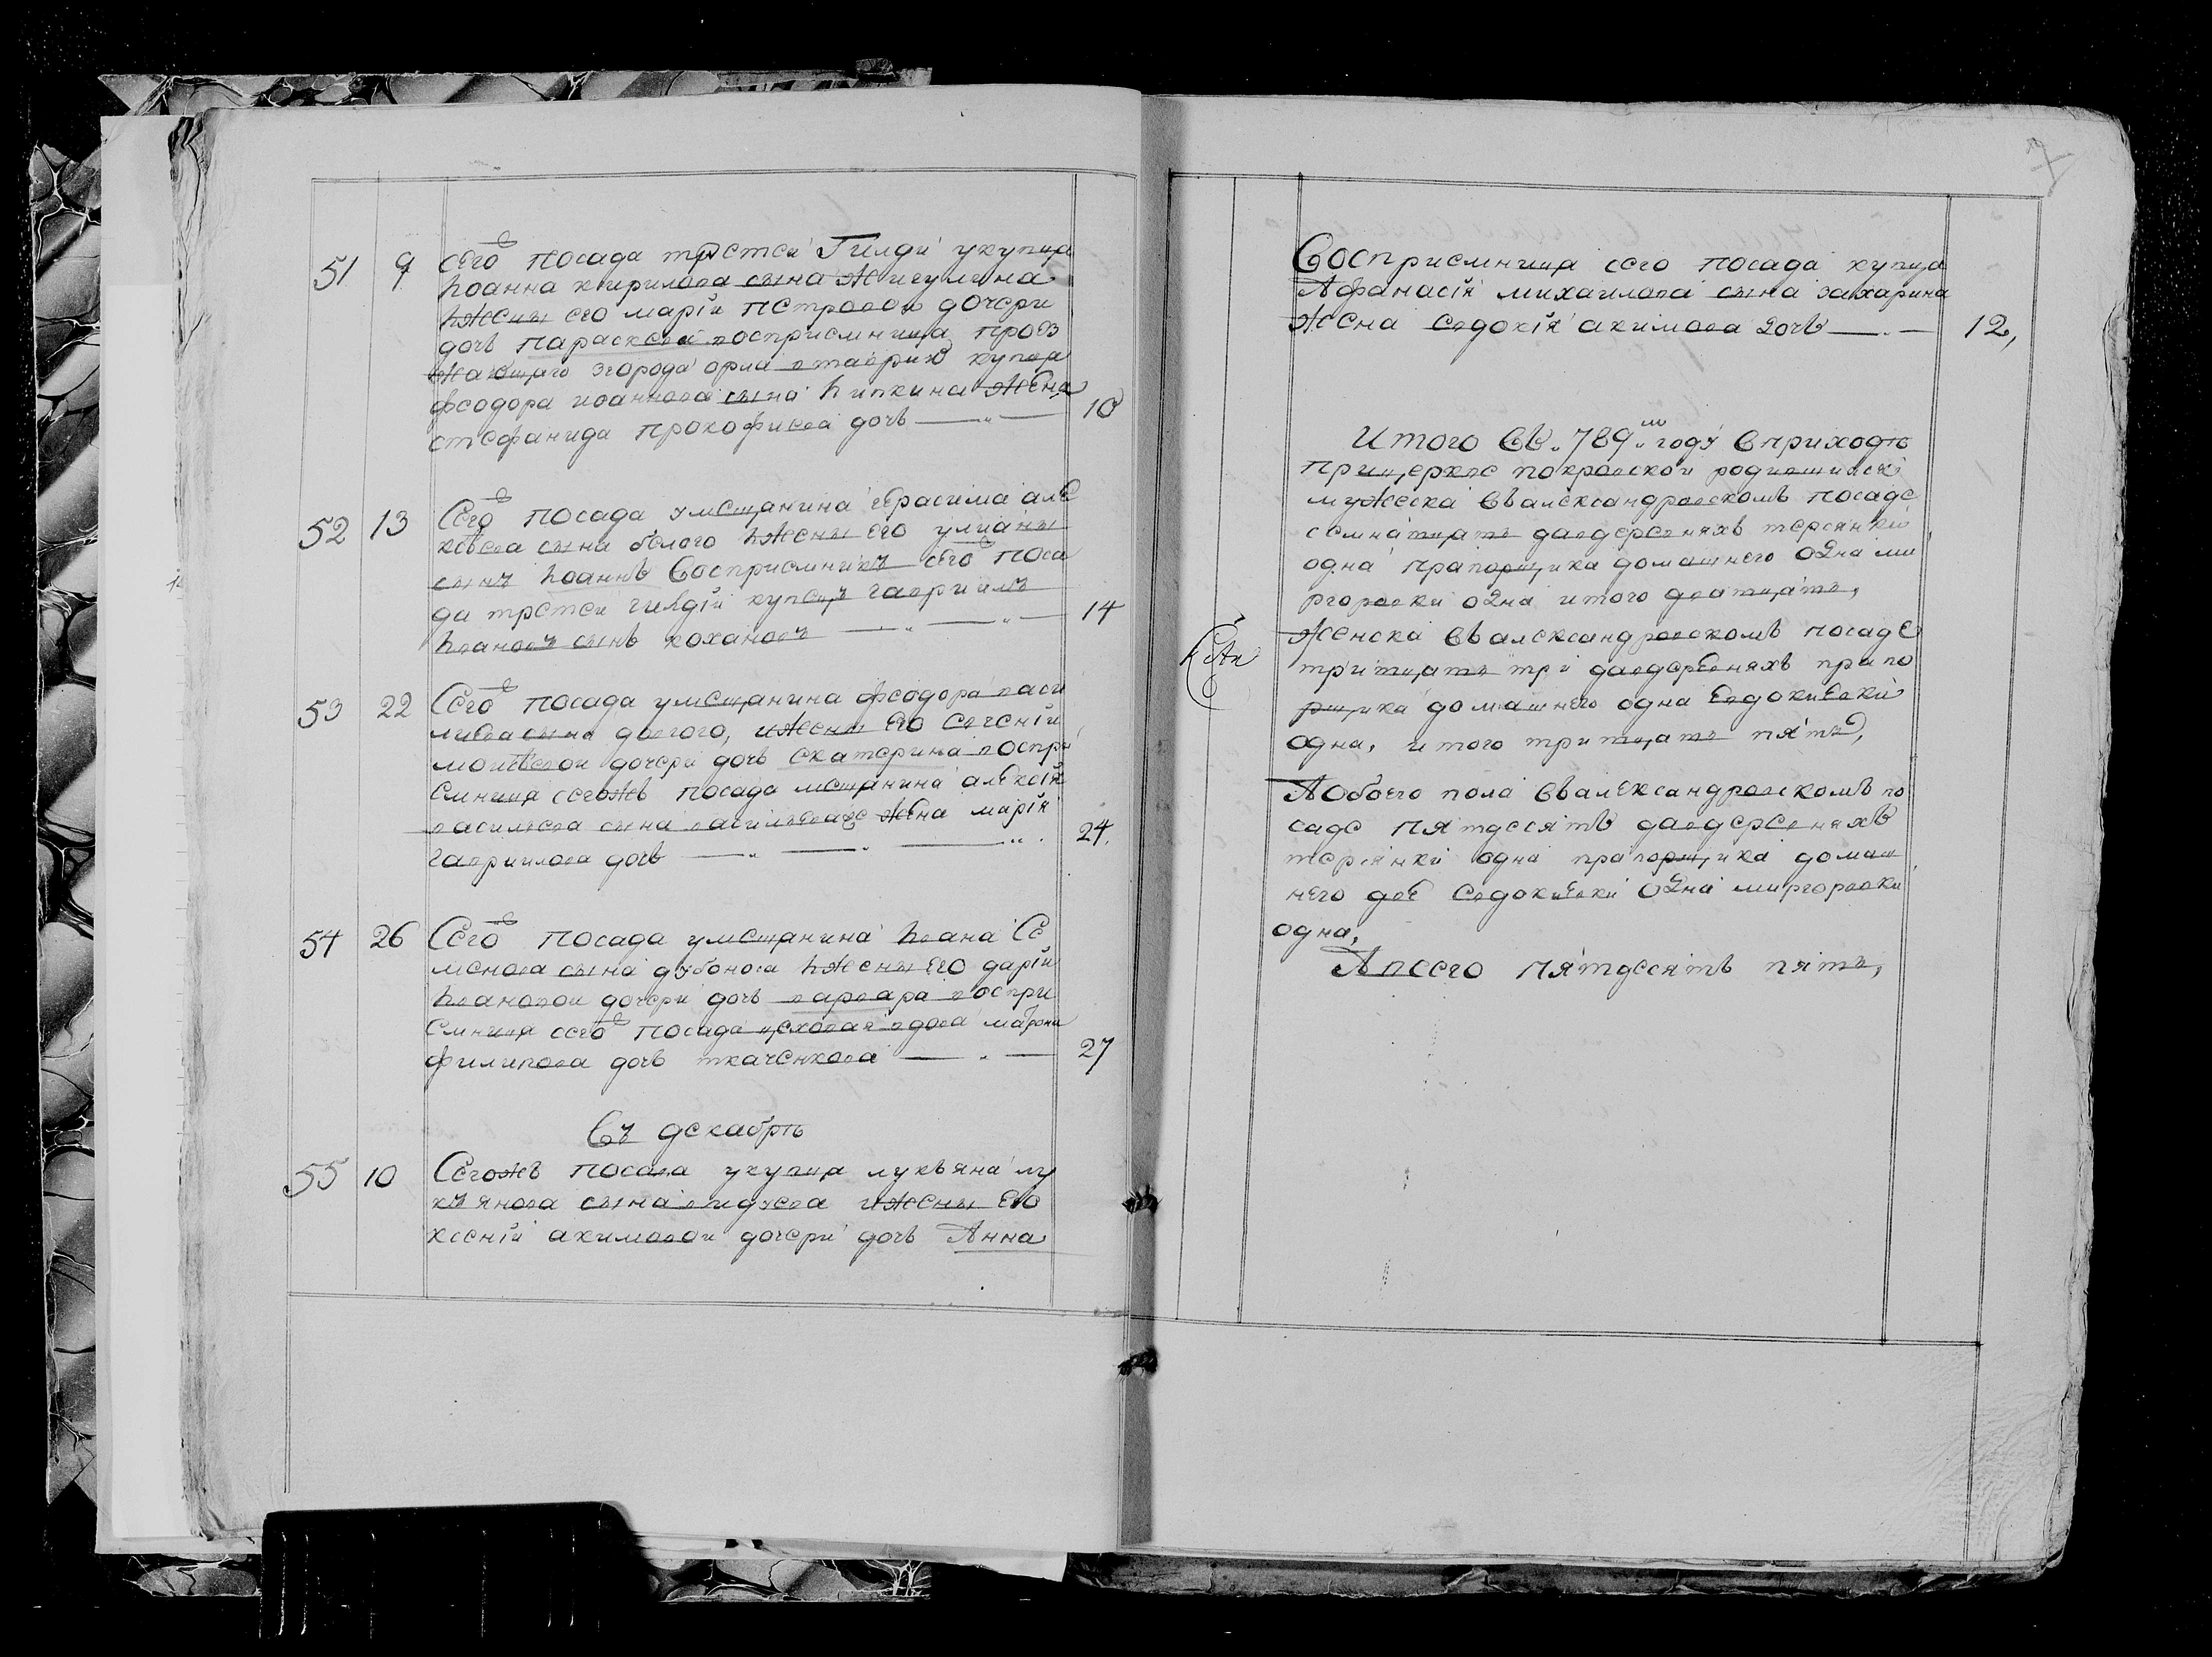 7
51 9 сего посада третей Гилди укупца
Иоанна кирилова сына Жигулина
ижены его марiи петровои дочери
дочь параскевиа восприемница проез
жающаго згорода орла втаврию купца
феодора иоаннова сына Пипкина жена
стефанида прокофиева дочь — 10
52 13 Сего посада умещанина герасима але
ксѣева сына бѣлого ижены его улианы
сынъ Иоаннъ Восприемникъ сего поса
да третеи гилдiи купецъ гавриилъ
Ивановъ сынъ кохановъ — 14
53 22 Сего посада умещанина феодора васи
лиева сына довгого, ижены его евгенiи
моисѣевои дочери дочь екатерина воспри
емница сегожъ посада мещанина алексiя
василиева сына василева жена марiя
гавриилова дочь — 24.
54 26 Сего посада умещанина Ивана Се
менова сына дубонова ижены его дарiи
Ивановои дочери дочь варвара воспри
емница сего посада цеховая вдова матрона
филипова дочь ткаченкова — 27
Въ декабрѣ
55 10 Сегожъ посада укупца лукъяна лу
къянова сына видуева ижены его
ксенiи акимовои дочери дочь Анна
Восприемница сего посада купца
Афанасiя михаилова сына захарина
жена евдокiя акимова дочь — 12,
Итого Въ 789м году вприходѣ
прицеркве покровскои родившихся
мужеска въалександровскомъ посаде
семнатцать давдеревняхъ терсянки
одна прапорщика домашнего одна ми
ргоровки одна итого дватцать,
Женска въалександровскомъ посаде
тритцать три давдеревняхъ прапо
рщика домашнего одна Евдокиевки
одна, итого тритцать пять,
Аобоего пола въалександровскомъ по
саде пятдесятъ давдеревняхъ
терсянки одна прапорщика домаш
него две евдокиевки одна миргоровки
одна,
Авсего пятдесятъ пять,